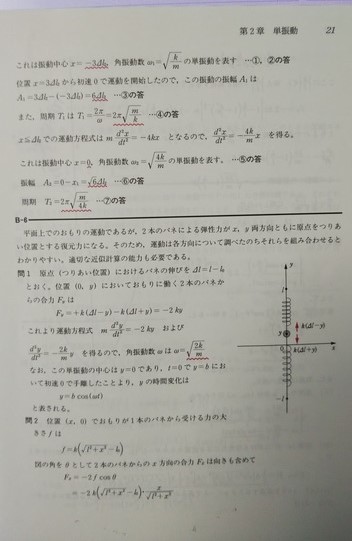 第2章 単振動 21
これは振動中心 x = −3Δl₀, 角振動数 ω₁ = √(k/m) の単振動を表す …①, ②の答
位置 x = 3Δl₀ から初速 0 で運動を開始したので, この振動の振幅 A₁ は
A₁ = 3Δl₀ − (−3Δl₀) = 6Δl₀ …③の答
また, 周期 T₁ は T₁ = 2π/ω = 2π√(m/k) …④の答
での運動方程式は m d²x/dt² = −4kx となるので, d²x/dt² = −4k/m x を得る。
これは振動中心 x = 0, 角振動数 ω₂ = √(4k/m) の単振動を表す。 …⑤の答
振幅 …⑥の答
周期 T₂ = 2π√(m/4k) …⑦の答
B-6
平面上でのおもりの運動であるが, 2本のバネによる弾性力が x, y 両方向ともに原点をつりあ
い位置とする復元力になる。そのため, 運動は各方向について調べたのちそれらを組み合わせると
わかりやすい。適切な近似計算の能力も必要である。
問1 原点（つりあい位置）におけるバネの伸びを Δl = l − l₀
とおく。位置 (0, y) においておもりに働く2本のバネか
らの合力 Fᵧ は
Fᵧ = +k(Δl − y) − k(Δl + y) = −2ky
これより運動方程式 m d²y/dt² = −2ky および
d²y/dt² = −2k/m y を得るので, 角振動数 ω は ω = √(2k/m)
なお, この振動の中心は y = 0 であり, t = 0 で y = b にお
いて初速 0 で手離したことより, y の時間変化は
y = b cos(ωt)
と表される。
問2 位置 (x, 0) でおもりが1本のバネから受ける力の大
きさ f は
f = k(√(l² + x²) − l₀)
図の角を θ として2本のバネからの x 方向の合力 Fₓ は向きも含めて
Fₓ = −2f cos θ
= −2k(√(l² + x²) − l₀)·x/√(l² + x²)
y
l
k(Δl − y)
y
0
k(Δl + y)
x
−l